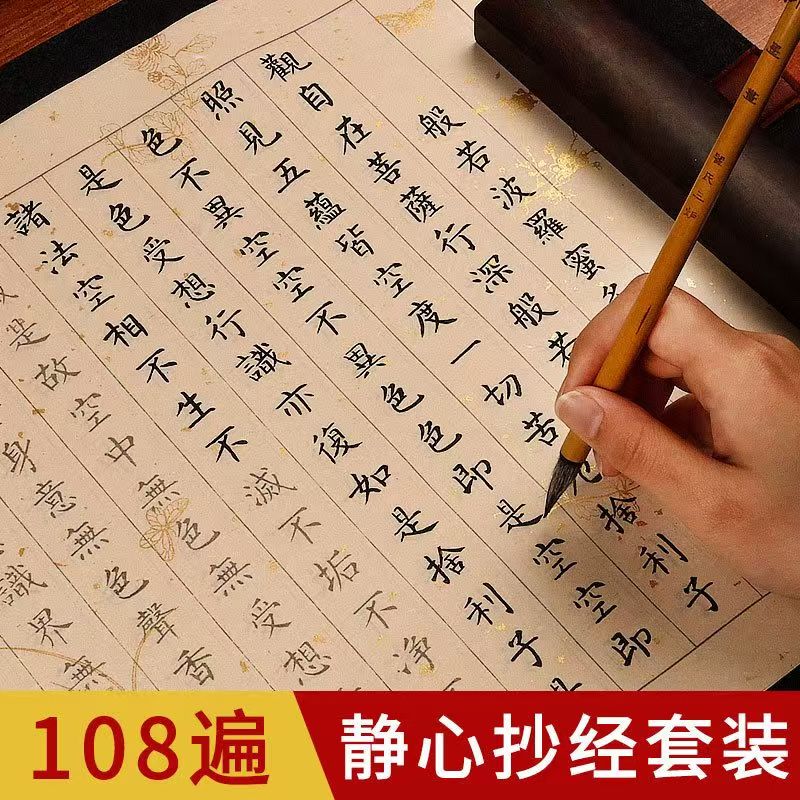 般若波羅蜜
觀自在菩薩行深般若
照見五蘊皆空度一切苦厄捨利子
色不異空空不異色色即是空空即
是色受想行識亦復如是捨利子是
諸法空相不生不滅不垢不净
是故空中無色無受想
身意無色聲香
識界無
108遍
静心抄经套装